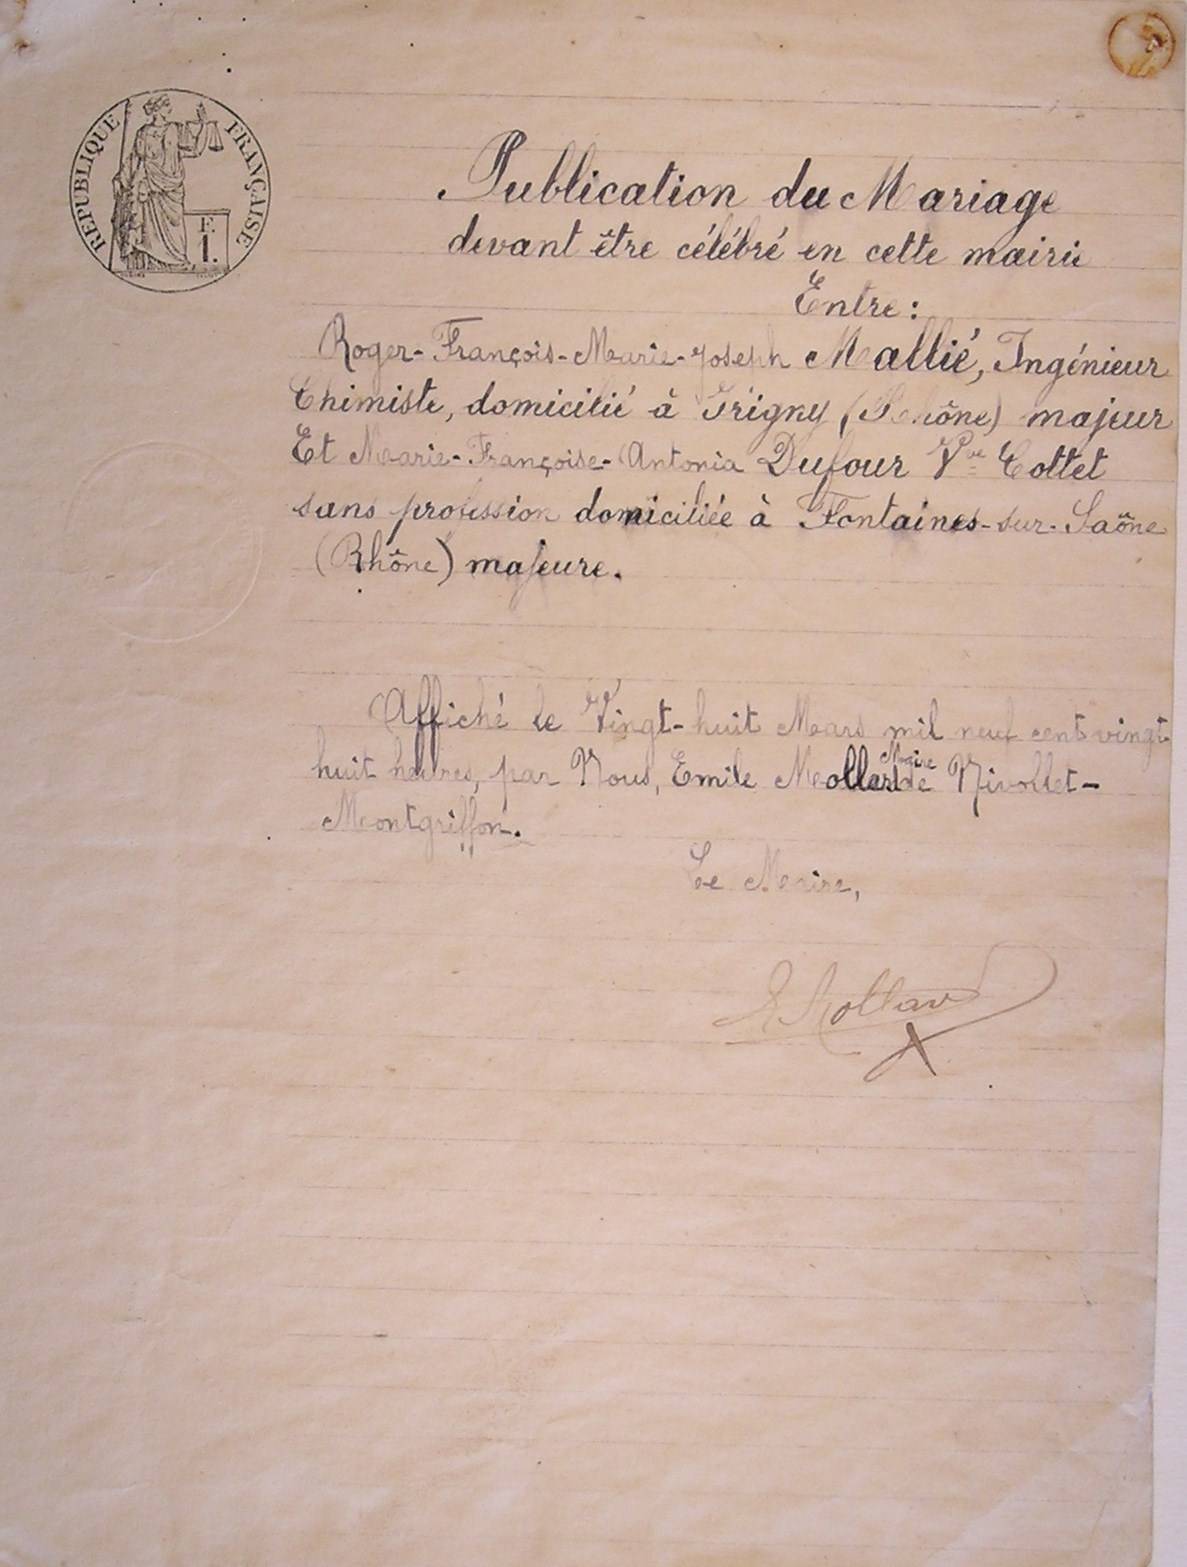 RÉPUBLIQUE FRANÇAISE
F.
1.
Publication du Mariage
devant être célébré en cette mairie
Entre :
Roger-François-Marie-Joseph Mallié, Ingénieur
Chimiste, domicilié à Grigny (Rhône) majeur
Et Marie-Françoise-Antonia Dufour Vve Cottet
sans profession domiciliée à Fontaines-sur-Saône
(Rhône) majeure.
Affiché le Vingt-huit Mars mil neuf cent vingt
Maire
huit heures, par Nous, Emile Mollard de Nivollet-
Montgriffon.
Le Maire,
E Mollard